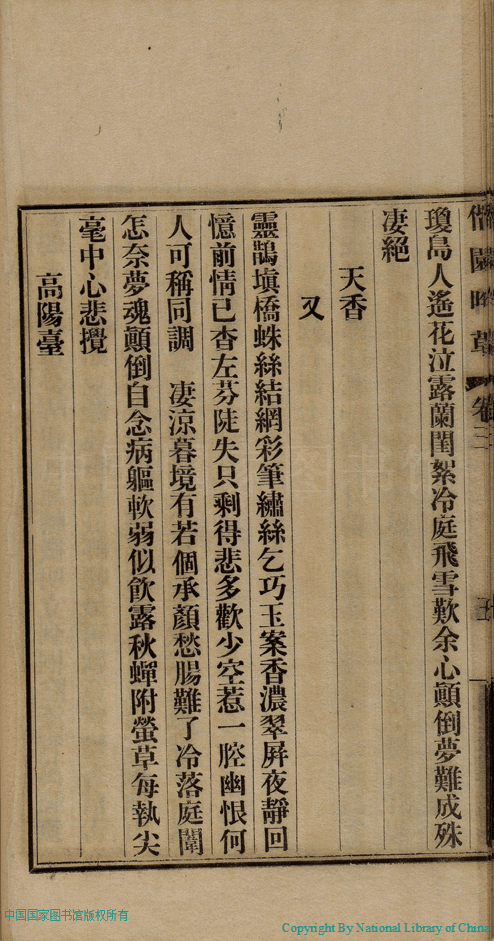 瓊島人遙花泣露蘭閨絮冷庭飛雪歎余心顚倒夢難成殊
凄絕
天香
又
靈鵲塡橋蛛絲結網彩筆繡絲乞巧玉案香濃翠屛夜靜回
憶前情已杳左芬陡失只剩得悲多歡少空惹一腔幽恨何
人可稱同調　凄涼暮境有若個承顏愁腸難了冷落庭闈
怎奈夢魂顚倒自念病軀軟弱似飮露秋蟬附螢草每執尖
毫中心悲攪
高陽臺
卷三
中国国家图书馆版权所有
Copyright By National Library of China